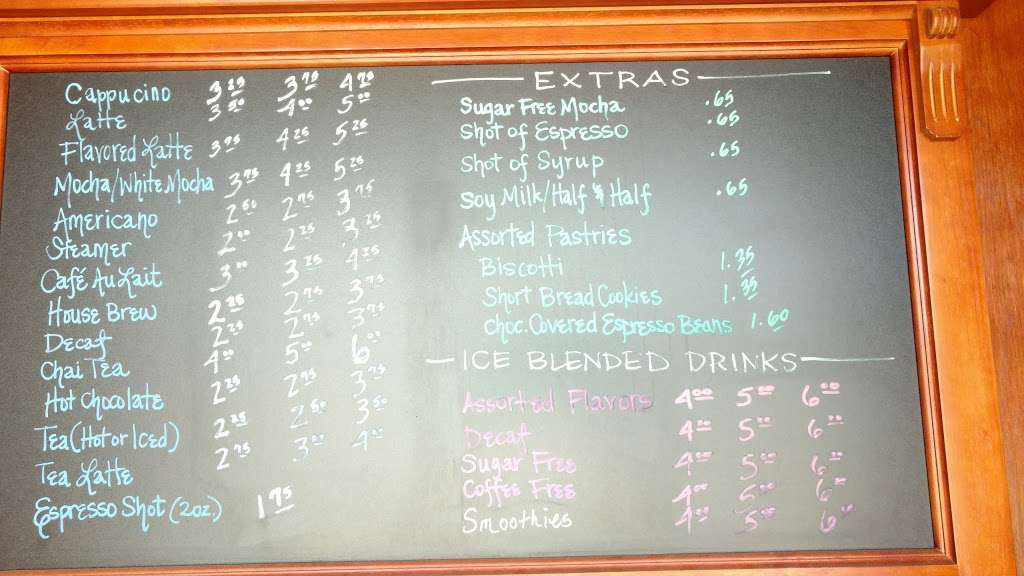 Cappucino 3 25 3 75 4 75
Latte 3 50 4 00 5 00
Flavored Latte 3 75 4 25 5 25
Mocha/White Mocha 3 75 4 25 5 25
Americano 2 50 2 75 3 75
Steamer 2 00 2 25 3 25
Café Au Lait 3 00 3 25 4 25
House Brew 2 25 2 75 3 75
Decaf 2 25 2 75 3 75
Chai Tea 4 00 5 00 6 00
Hot Chocolate 2 25 2 75 3 75
Tea (Hot or Iced) 2 25 2 50 3 50
Tea Latte 2 75 3 00 4 00
Espresso Shot (2oz.) 1 75
EXTRAS
Sugar Free Mocha .65
Shot of Espresso .65
Shot of Syrup .65
Soy Milk/Half & Half .65
Assorted Pastries
Biscotti 1.35
Short Bread Cookies 1.35
Choc. Covered Espresso Beans 1.60
ICE BLENDED DRINKS
Assorted Flavors 4 00 5 00 6 00
Decaf 4 00 5 00 6 00
Sugar Free 4 00 5 00 6 00
Coffee Free 4 00 5 00 6 00
Smoothies 4 00 5 00 6 00